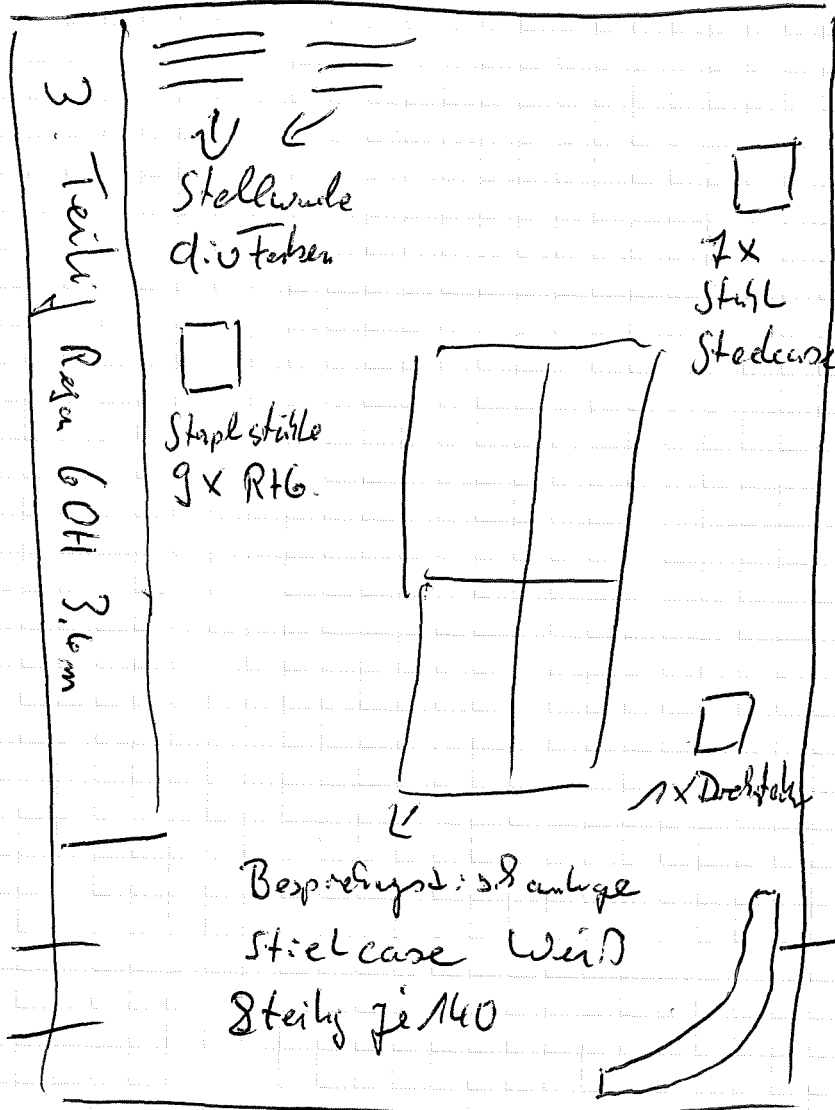 3. Teilig Regal 6 OH 3,6m
Stellwände
div Farben
7x
Stuhl
Steelcase
Staplstühle
9x R+G.
1x Drehstuhl
Besprechungstischanlage
Stielcase Weiß
8teilig je 140